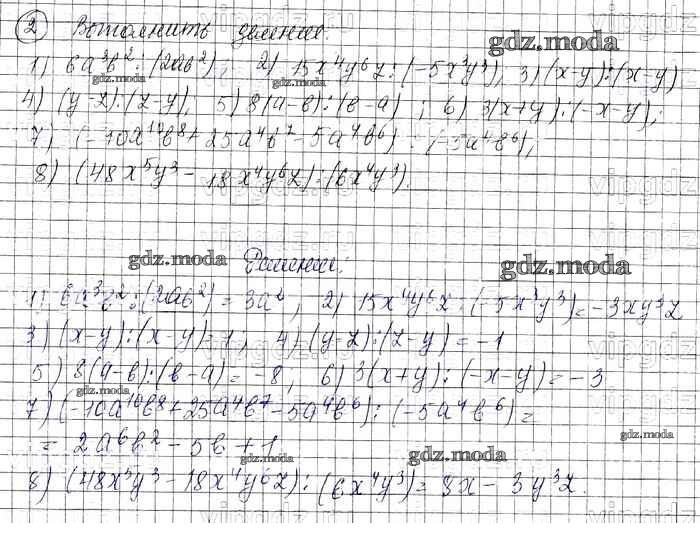 ② Выполнить деление:
1) 6a³b² : (2ab²); 2) 15x⁴y⁶z : (-5x³y³), 3) (x-y) : (x-y)
4) (y-z) : (z-y), 5) 8(a-b) : (b-a) ; 6) 3(x+y) : (-x-y);
7) (-10a¹⁰b⁸ + 25a⁴b⁷ - 5a⁴b⁶) : (-5a⁴b⁶),
8) (48x⁵y³ - 18x⁴y⁶z) : (6x⁴y³).
Решение:
1) 6a³b² : (2ab²) = 3a², 2) 15x⁴y⁶z : (-5x³y³) = -3xy³z
3) (x-y) : (x-y) = 1, 4) (y-z) : (z-y) = -1
5) 8(a-b) : (b-a) = -8, 6) 3(x+y) : (-x-y) = -3
7) (-10a¹⁰b⁸ + 25a⁴b⁷ - 5a⁴b⁶) : (-5a⁴b⁶) =
= 2a⁶b² - 5b + 1
8) (48x⁵y³ - 18x⁴y⁶z) : (6x⁴y³) = 8x - 3y³z.
gdz.moda
gdz.moda
gdz.moda
gdz.moda
gdz.moda
gdz.moda
gdz.moda
gdz.moda
gdz.moda